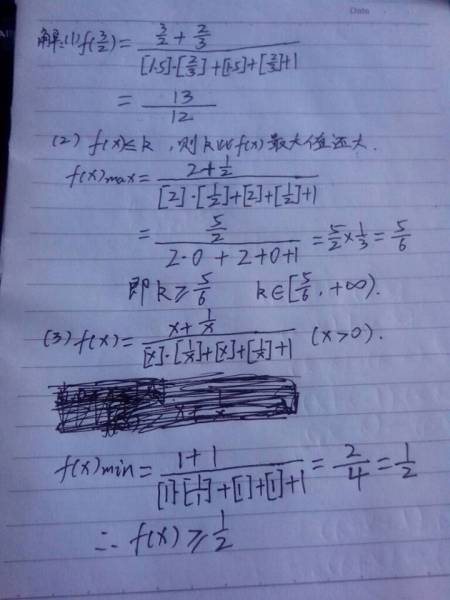 Date
解:(1) f(3/2) = (3/2 + 2/3) / ([1.5]·[2/3]+[1.5]+[2/3]+1)
= 13/12
(2) f(x)≤k ,则k比f(x)最大值还大.
f(x)max = (2+1/2) / ([2]·[1/2]+[2]+[1/2]+1)
= (5/2) / (2·0+2+0+1) = 5/2×1/3 = 5/6
即k≥5/6 k∈[5/6,+∞).
(3) f(x) = (x+1/x) / ([x]·[1/x]+[x]+[1/x]+1) (x>0).
f(x)min = (1+1) / ([1]·[1/1]+[1]+[1]+1) = 2/4 = 1/2
∴ f(x)≥1/2